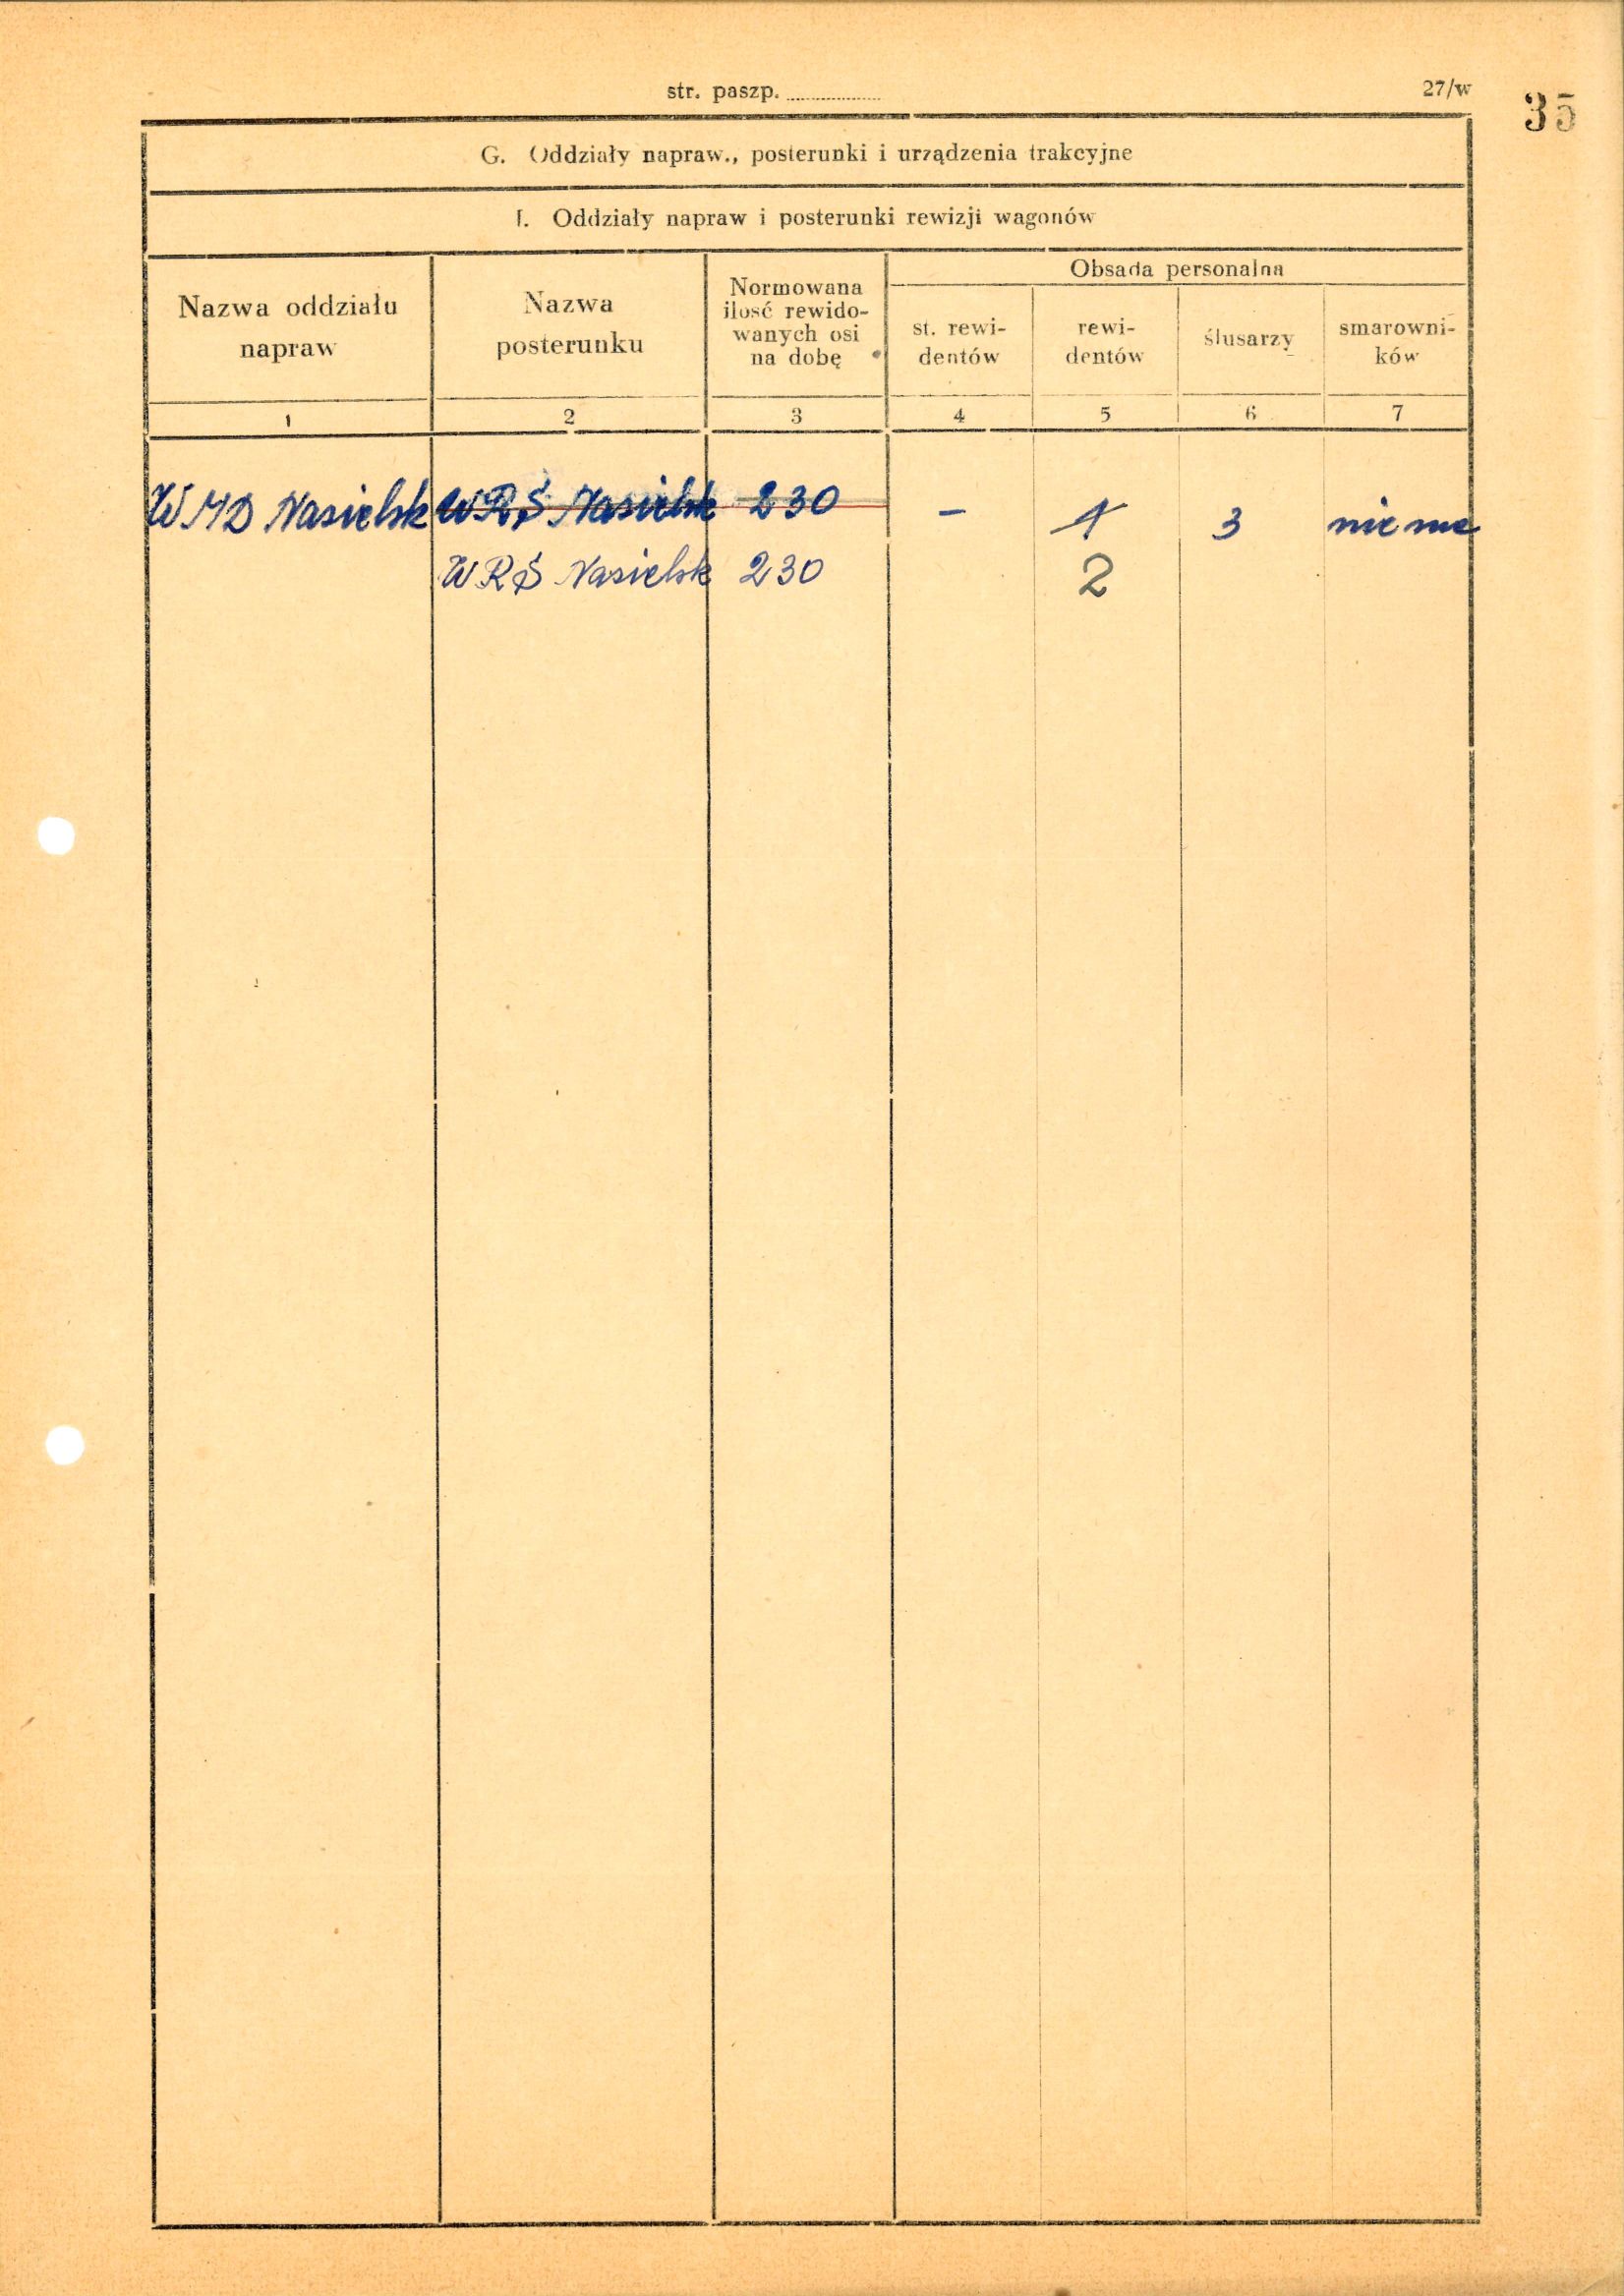 str. paszp.
27/w
35
G. Oddziały napraw., posterunki i urządzenia trakcyjne
I. Oddziały napraw i posterunki rewizji wagonów
Nazwa oddziału
napraw
Nazwa
posterunku
Normowana
ilość rewido-
wanych osi
na dobę
Obsada personalna
st. rewi-
dentów
rewi-
dentów
ślusarzy
smarowni-
ków
1 2 3 4 5 6 7
WMD Nasielsk WRŚ Nasielsk 230 - 1 3 nie ma
WRŚ Nasielsk 230 2